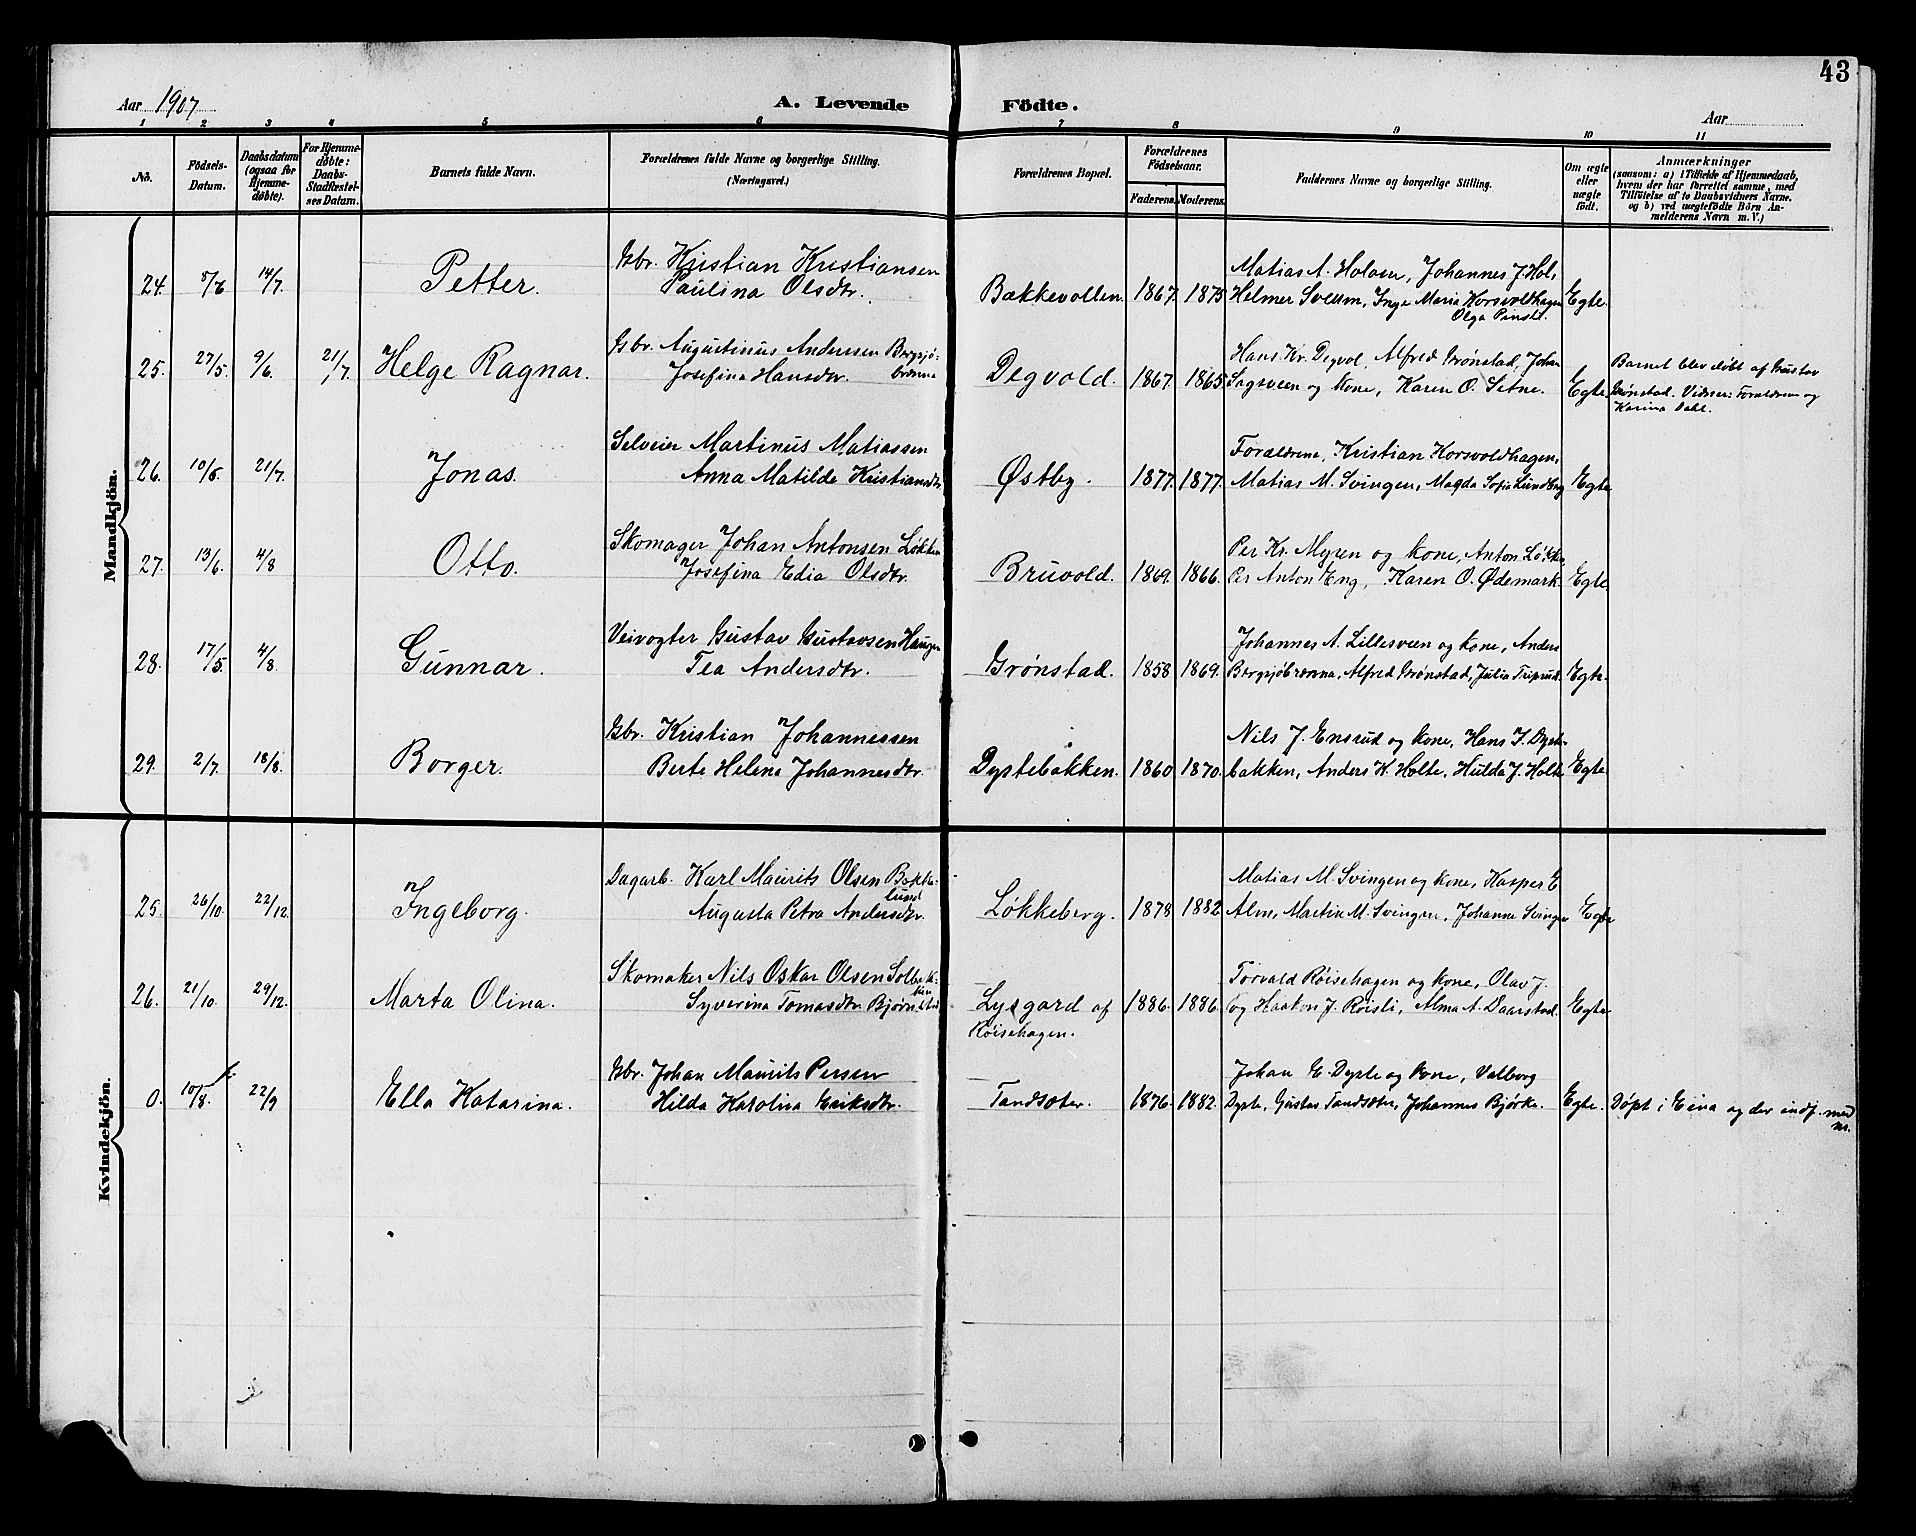 43
Aar 1907
A. Levende Födte.
Aar
1 2 3 4 5 6 7 8 9 10 11
No.
Födsels-
Datum.
Daabsdatum
(ogsaa for
Hjemme-
döbte).
For Hjemme-
döbte:
Daabs-
Stadfæstel-
ses Datum.
Barnets fulde Navn.
Forældrenes fulde Navne og borgerlige Stilling.
(Næringsvei.)
Forældrenes Bopæl.
Forældrenes
Födselsaar.
Faderens. Moderens.
Faddernes Navne og borgerlige Stilling.
Om ægte
eller
uægte
födt.
Anmærkninger
(saasom: a) i Tilfælde af Hjemmedaab,
hvem der har forrettet samme, med
Tilföielse af to Daabsvidners Navne.
og b) ved uægtefödte Börn An-
melderens Navn m. V.)
Mandkjön.
24. 5/6 14/7 Petter.
Gbr. Kristian Kristiansen
Paulina Olsdtr.
Bækkevollen. 1867. 1875
Matias A. Holom, Johannes J. Hols
Helmer Sveum, Inge Maria Korsvoldhagen
Olga Pinsli.
Egte.
25. 27/5. 9/6. 21/7. Helge Ragnar.
Gbr. Augustinus Andersen Bergsjø-
brænna
Josefina Hansdtr.
Degvold. 1867. 1865.
Hans Kr. Degvol, Alfred Grønstad, Johan
Sagsveen og kone, Karen O. Sætne.
Egte.
Barnet blev døbt af Gustav
Grønstad. Vidner: Forældrene og
Karina Dahl.
26. 10/5. 21/7. Jonas.
Selveier Martinus Matiassen
Anna Matilde Kristiansdtr.
Østby. 1877. 1877.
Forældrene, Kristian Korsvoldhagen,
Matias M. Svingen, Magda Sofia Lundberg
Egte
27. 13/6. 4/8 Otto.
Skomager Johan Antonsen Løkken
Josefina Edia Olsdtr.
Bruvold. 1869. 1866.
Per Kr. Myren og kone, Anton Løkke
Per Anton Eng, Karen O. Ødemark.
Egte.
28. 17/5. 4/8. Gunnar.
Veivogter Gustav Gustavsen Haugen
Tea Andersdtr.
Grønstad. 1858 1869.
Johannes A. Lillesveen og kone, Anders
Bergsjöbrenna, Alfred Grønstad, Julia Triprud.
Egte.
29. 2/7. 18/8. Borger.
Gbr. Kristian Johannessen
Berte Helene Johannesdtr.
Dystebakken. 1860 1870.
Nils J. Ensrud og kone, Hans I. Dyste-
bakken, Anders K. Holte, Hulda J. Holte
Egte
Kvindekjön.
25. 26/10. 22/12. Ingeborg.
Dagarb. Karl Maurits Olsen Bække-
lund
Augusta Petra Andersdtr.
Løkkeberg. 1878 1882
Matias M. Svingen og kone, Kasper E
Alm, Martin M. Svingen, Johanne Svingen
Egte
26. 21/10. 29/12. Marta Olina.
Skomaker Nils Oskar Olsen Solbak-
ken
Syverina Tomasdtr. Bjørnstad
Lysgard af
Röisehagen.
1886. 1886.
Torvald Röisehagen og kone, Olav J.
og Haakon J. Röisli, Alma A. Daarstad.
Egte
0. 10/8. 22/9 Ella Katarina.
Gbr. Johan Maurits Persen
Hilda Karolina Eriksdtr.
Tandsæter. 1876. 1882.
Johan E. Dyste og kone, Valborg
Dyste, Gustav Tandsæter, Johannes Bjørke.
Egte.
Døpt i Eina og der indf. med
nr.